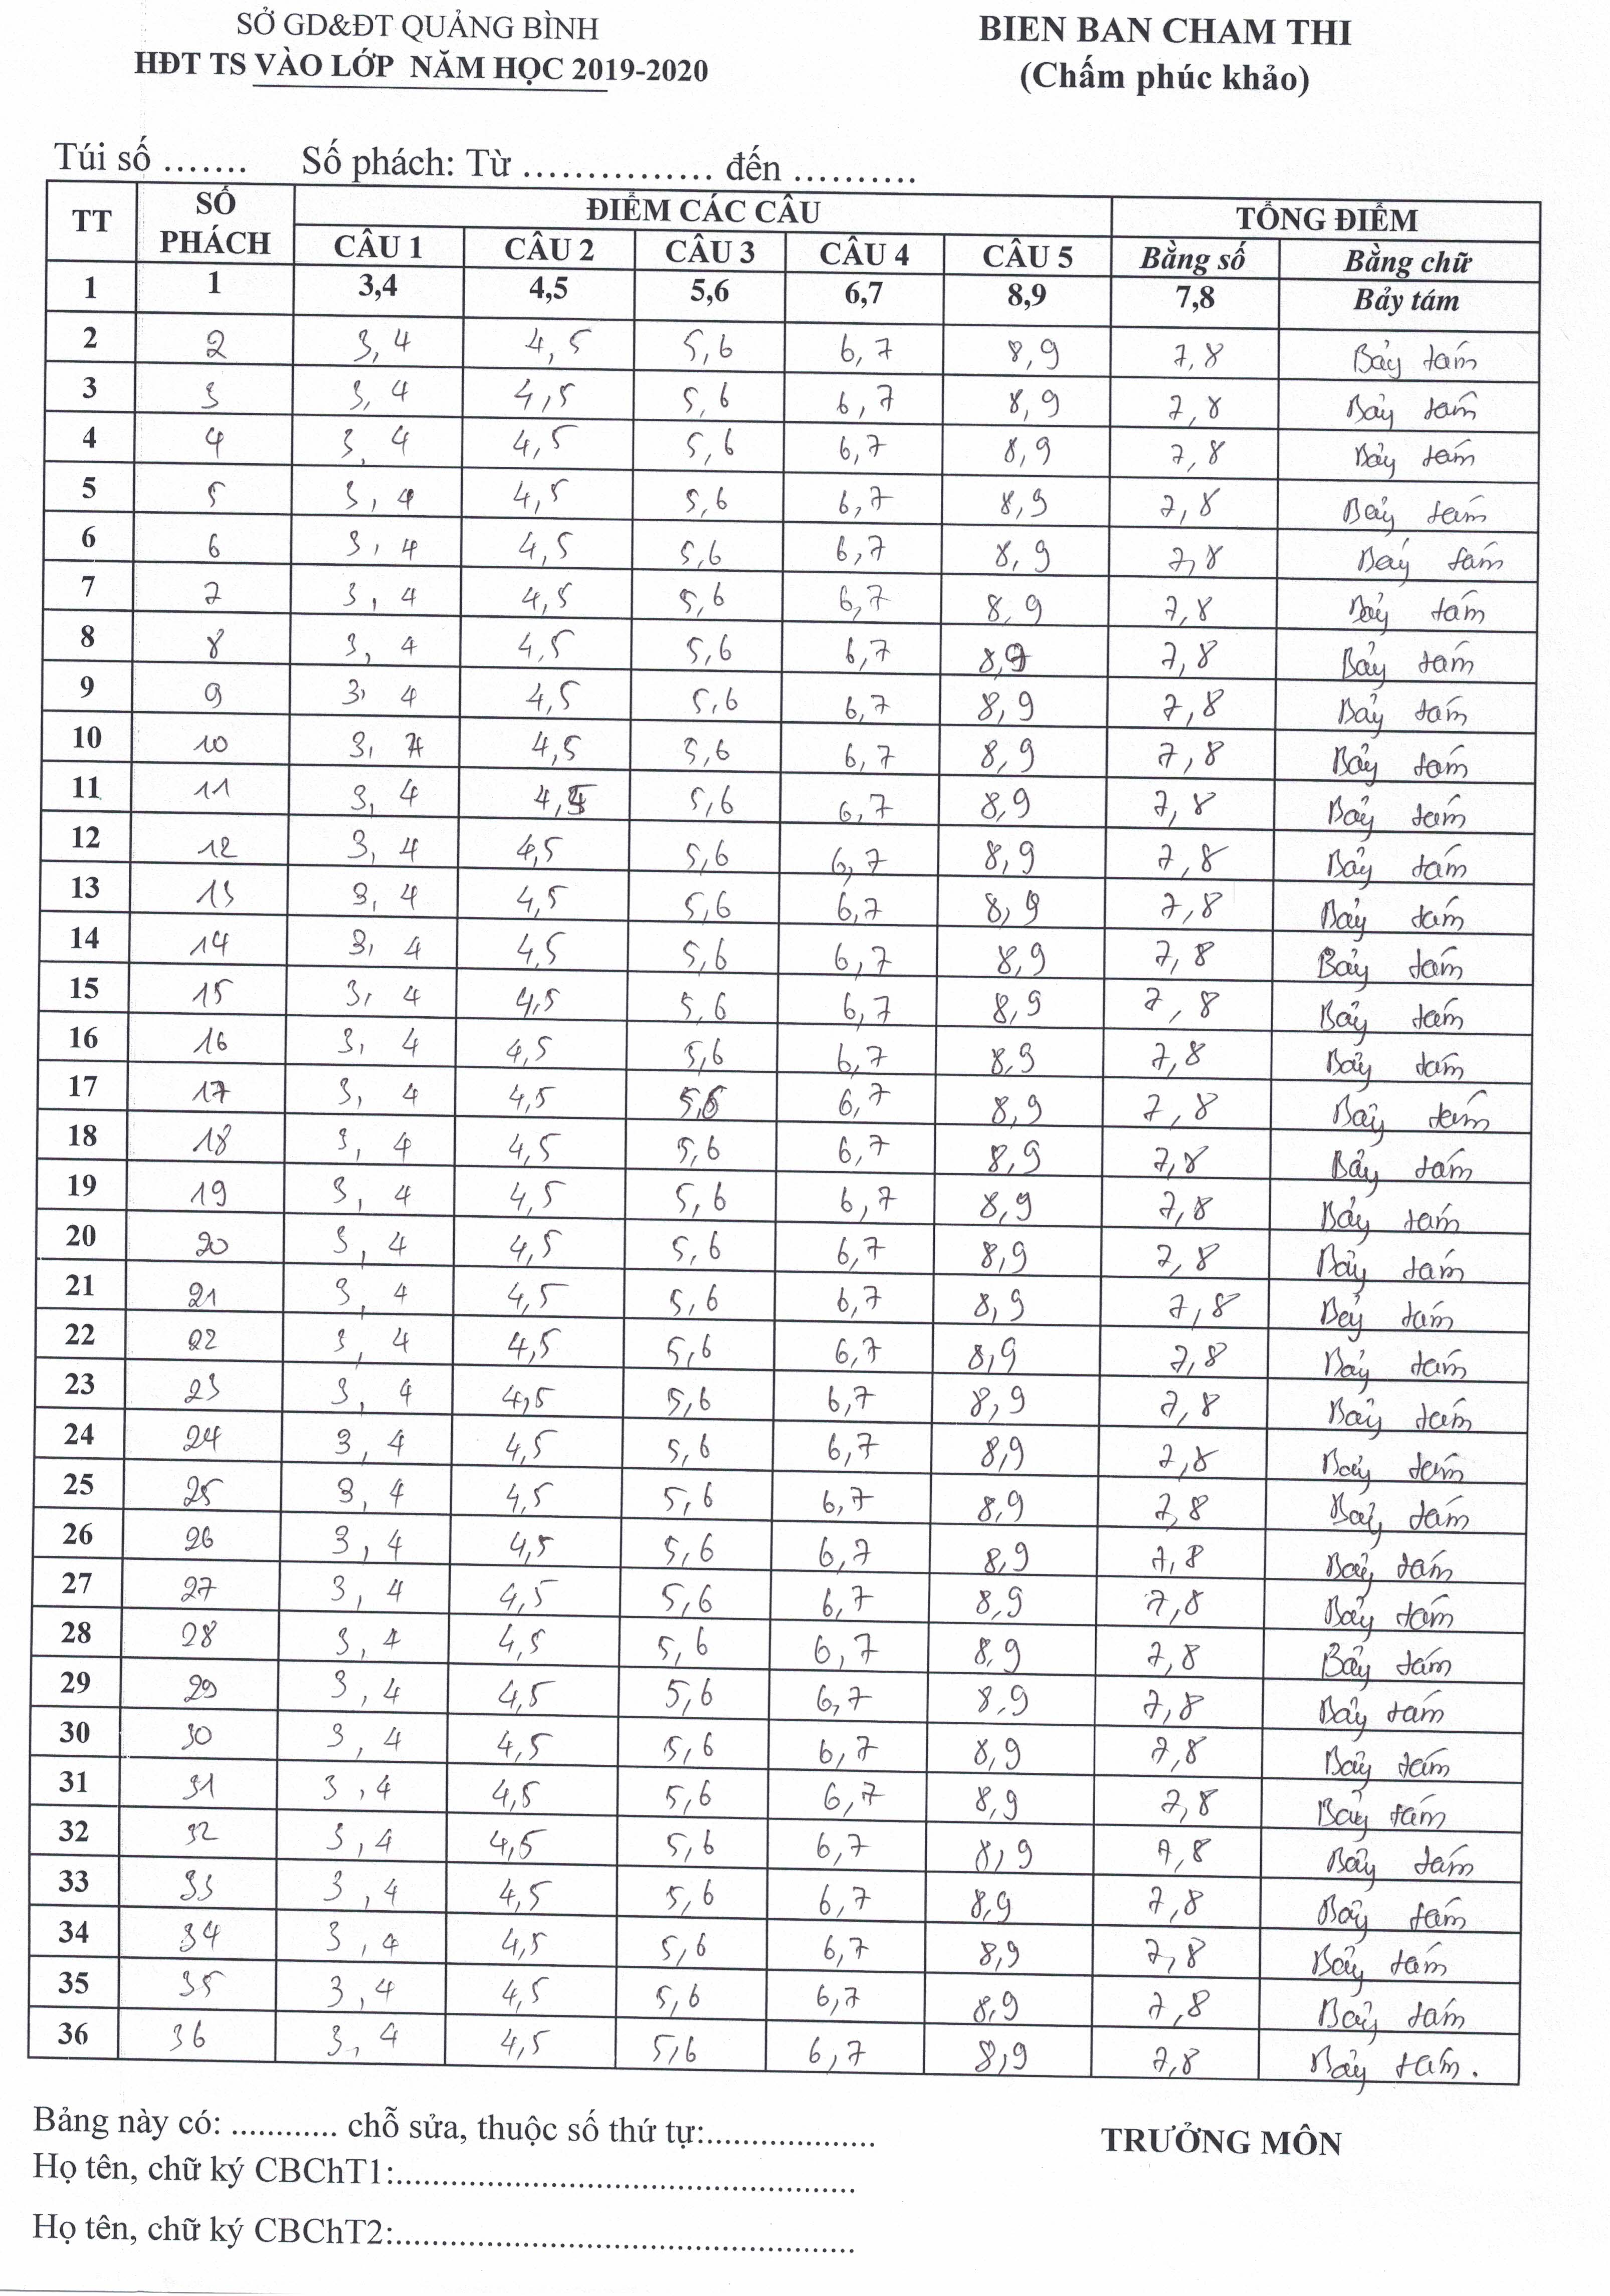 SỞ GD&ĐT QUẢNG BÌNH
HĐT TS VÀO LỚP NĂM HỌC 2019-2020
BIEN BAN CHAM THI
(Chấm phúc khảo)
Túi số ....... Số phách: Từ ............... đến ..........
TT SỐ PHÁCH ĐIỂM CÁC CÂU TỔNG ĐIỂM
CÂU 1 CÂU 2 CÂU 3 CÂU 4 CÂU 5 Bằng số Bằng chữ
1 1 3,4 4,5 5,6 6,7 8,9 7,8 Bảy tám
2 2 3,4 4,5 5,6 6,7 8,9 7,8 Bảy tám
3 3 3,4 4,5 5,6 6,7 8,9 7,8 Bảy tám
4 4 3,4 4,5 5,6 6,7 8,9 7,8 Bảy tám
5 5 3,4 4,5 5,6 6,7 8,9 7,8 Bảy tám
6 6 3,4 4,5 5,6 6,7 8,9 7,8 Bảy tám
7 7 3,4 4,5 5,6 6,7 8,9 7,8 Bảy tám
8 8 3,4 4,5 5,6 6,7 8,9 7,8 Bảy tám
9 9 3,4 4,5 5,6 6,7 8,9 7,8 Bảy tám
10 10 3,4 4,5 5,6 6,7 8,9 7,8 Bảy tám
11 11 3,4 4,5 5,6 6,7 8,9 7,8 Bảy tám
12 12 3,4 4,5 5,6 6,7 8,9 7,8 Bảy tám
13 13 3,4 4,5 5,6 6,7 8,9 7,8 Bảy tám
14 14 3,4 4,5 5,6 6,7 8,9 7,8 Bảy tám
15 15 3,4 4,5 5,6 6,7 8,9 7,8 Bảy tám
16 16 3,4 4,5 5,6 6,7 8,9 7,8 Bảy tám
17 17 3,4 4,5 5,6 6,7 8,9 7,8 Bảy tám
18 18 3,4 4,5 5,6 6,7 8,9 7,8 Bảy tám
19 19 3,4 4,5 5,6 6,7 8,9 7,8 Bảy tám
20 20 3,4 4,5 5,6 6,7 8,9 7,8 Bảy tám
21 21 3,4 4,5 5,6 6,7 8,9 7,8 Bảy tám
22 22 3,4 4,5 5,6 6,7 8,9 7,8 Bảy tám
23 23 3,4 4,5 5,6 6,7 8,9 7,8 Bảy tám
24 24 3,4 4,5 5,6 6,7 8,9 7,8 Bảy tám
25 25 3,4 4,5 5,6 6,7 8,9 7,8 Bảy tám
26 26 3,4 4,5 5,6 6,7 8,9 7,8 Bảy tám
27 27 3,4 4,5 5,6 6,7 8,9 7,8 Bảy tám
28 28 3,4 4,5 5,6 6,7 8,9 7,8 Bảy tám
29 29 3,4 4,5 5,6 6,7 8,9 7,8 Bảy tám
30 30 3,4 4,5 5,6 6,7 8,9 7,8 Bảy tám
31 31 3,4 4,5 5,6 6,7 8,9 7,8 Bảy tám
32 32 3,4 4,5 5,6 6,7 8,9 7,8 Bảy tám
33 33 3,4 4,5 5,6 6,7 8,9 7,8 Bảy tám
34 34 3,4 4,5 5,6 6,7 8,9 7,8 Bảy tám
35 35 3,4 4,5 5,6 6,7 8,9 7,8 Bảy tám
36 36 3,4 4,5 5,6 6,7 8,9 7,8 Bảy tám.
Bảng này có: ............ chỗ sửa, thuộc số thứ tự:...................
TRƯỞNG MÔN
Họ tên, chữ ký CBChT1:....................................................
Họ tên, chữ ký CBChT2:....................................................